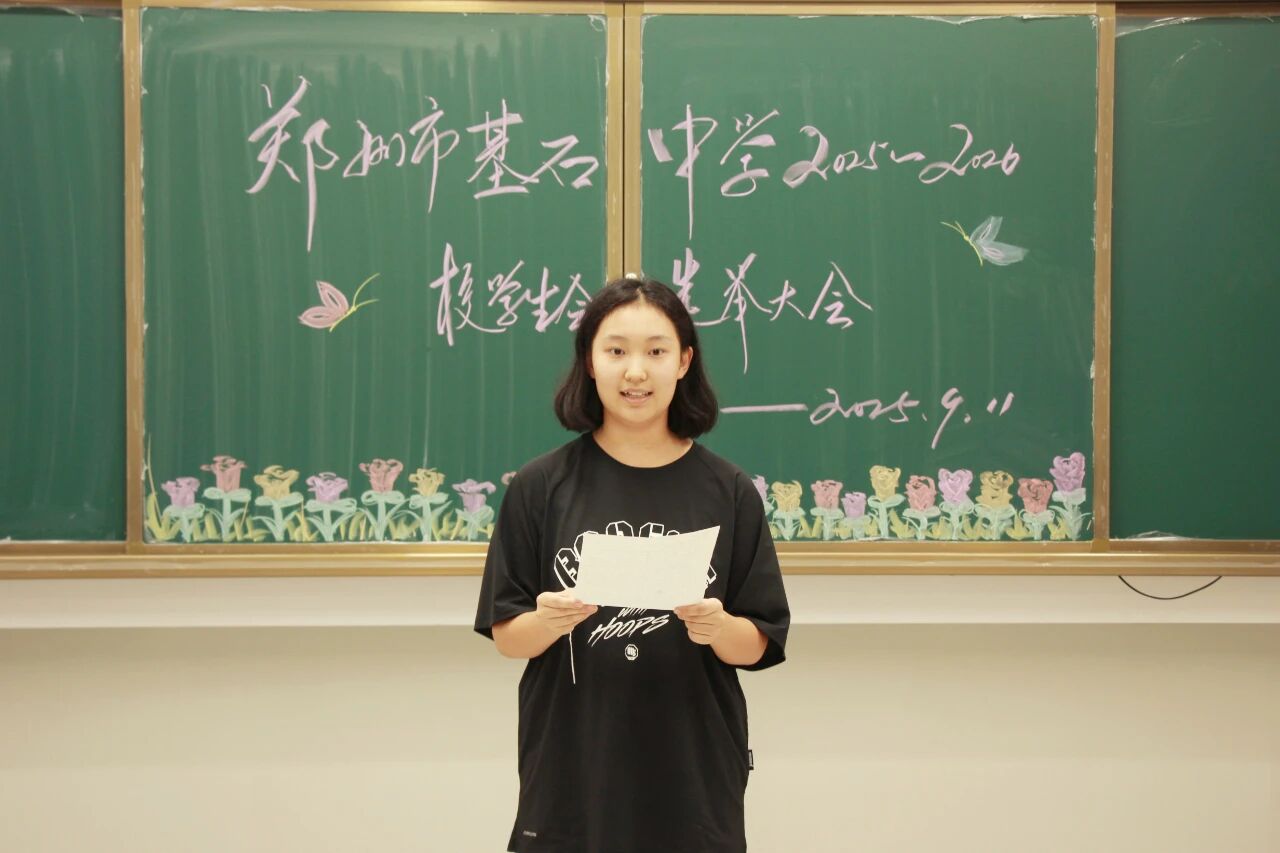 郑州市基石中学2025—2026
校学生会选举大会
——2025.9.11
WITH
HOOPS